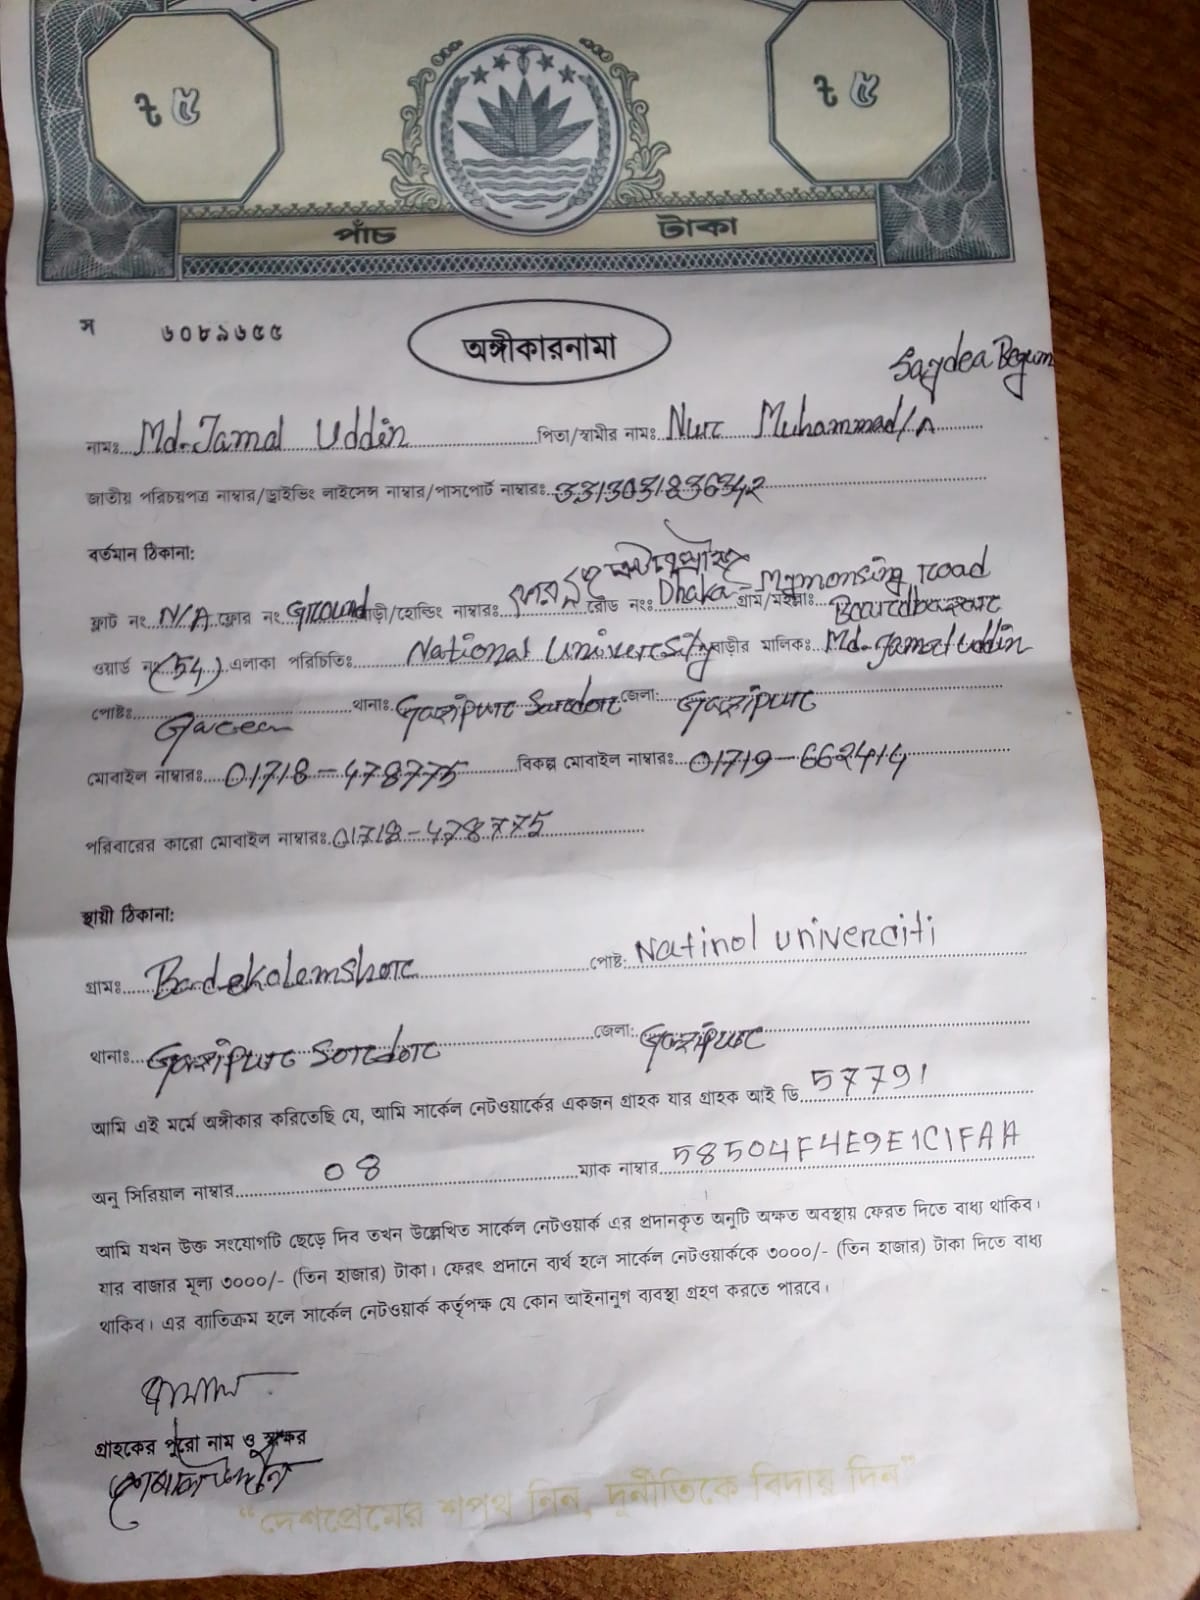 ৳ ৫ ৳ ৫
পাঁচ টাকা
স ৬০৮৯৬৫৫
অঙ্গীকারনামা
Saydea Begum
নামঃ Md. Jamal Uddin পিতা/স্বামীর নামঃ Nur Muhammad/
জাতীয় পরিচয়পত্র নাম্বার/ড্রাইভিং লাইসেন্স নাম্বার/পাসপোর্ট নাম্বারঃ 3313031836342
বর্তমান ঠিকানা:
ফ্লাট নং N/A ফ্লোর নং Ground বাড়ী/হোল্ডিং নাম্বারঃ রোড নংঃ Dhaka - Mymonsing road গ্রাম/মহল্লাঃ Boardbazar
ওয়ার্ড নং (34) এলাকা পরিচিতিঃ National University বাড়ীর মালিকঃ Md. Jamal Uddin
পোষ্টঃ Gacea থানাঃ Gazipur Sardor জেলা: Gazipur
মোবাইল নাম্বারঃ 01718-478775 বিকল্প মোবাইল নাম্বারঃ 01719-662414
পরিবারের কারো মোবাইল নাম্বারঃ 01718-478775
স্থায়ী ঠিকানা:
গ্রামঃ Badekolemshor পোষ্ট: Natinol univerciti
থানাঃ Gazipur Sordor জেলা: Gazipur
আমি এই মর্মে অঙ্গীকার করিতেছি যে, আমি সার্কেল নেটওয়ার্কের একজন গ্রাহক যার গ্রাহক আই ডি 57791
অনু সিরিয়াল নাম্বার 08 ম্যাক নাম্বার 58504F4E9E1C1FAA
আমি যখন উক্ত সংযোগটি ছেড়ে দিব তখন উল্লেখিত সার্কেল নেটওয়ার্ক এর প্রদানকৃত অনুটি অক্ষত অবস্থায় ফেরত দিতে বাধ্য থাকিব।
যার বাজার মূল্য ৩০০০/- (তিন হাজার) টাকা। ফেরৎ প্রদানে ব্যর্থ হলে সার্কেল নেটওয়ার্ককে ৩০০০/- (তিন হাজার) টাকা দিতে বাধ্য
থাকিব। এর ব্যাতিক্রম হলে সার্কেল নেটওয়ার্ক কর্তৃপক্ষ যে কোন আইনানুগ ব্যবস্থা গ্রহণ করতে পারবে।
গ্রাহকের পুরো নাম ও স্বাক্ষর
"দেশপ্রেমের শপথ নিন, দুর্নীতিকে বিদায় দিন"